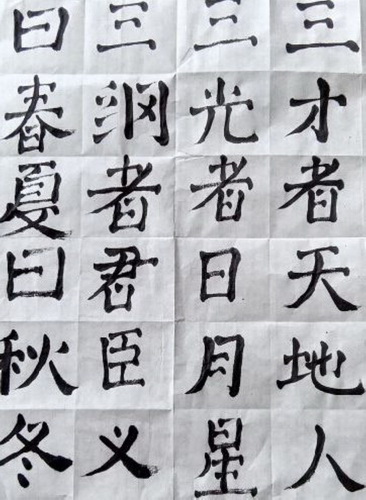 三才者天地人
三光者日月星
三纲者君臣义
曰春夏曰秋冬